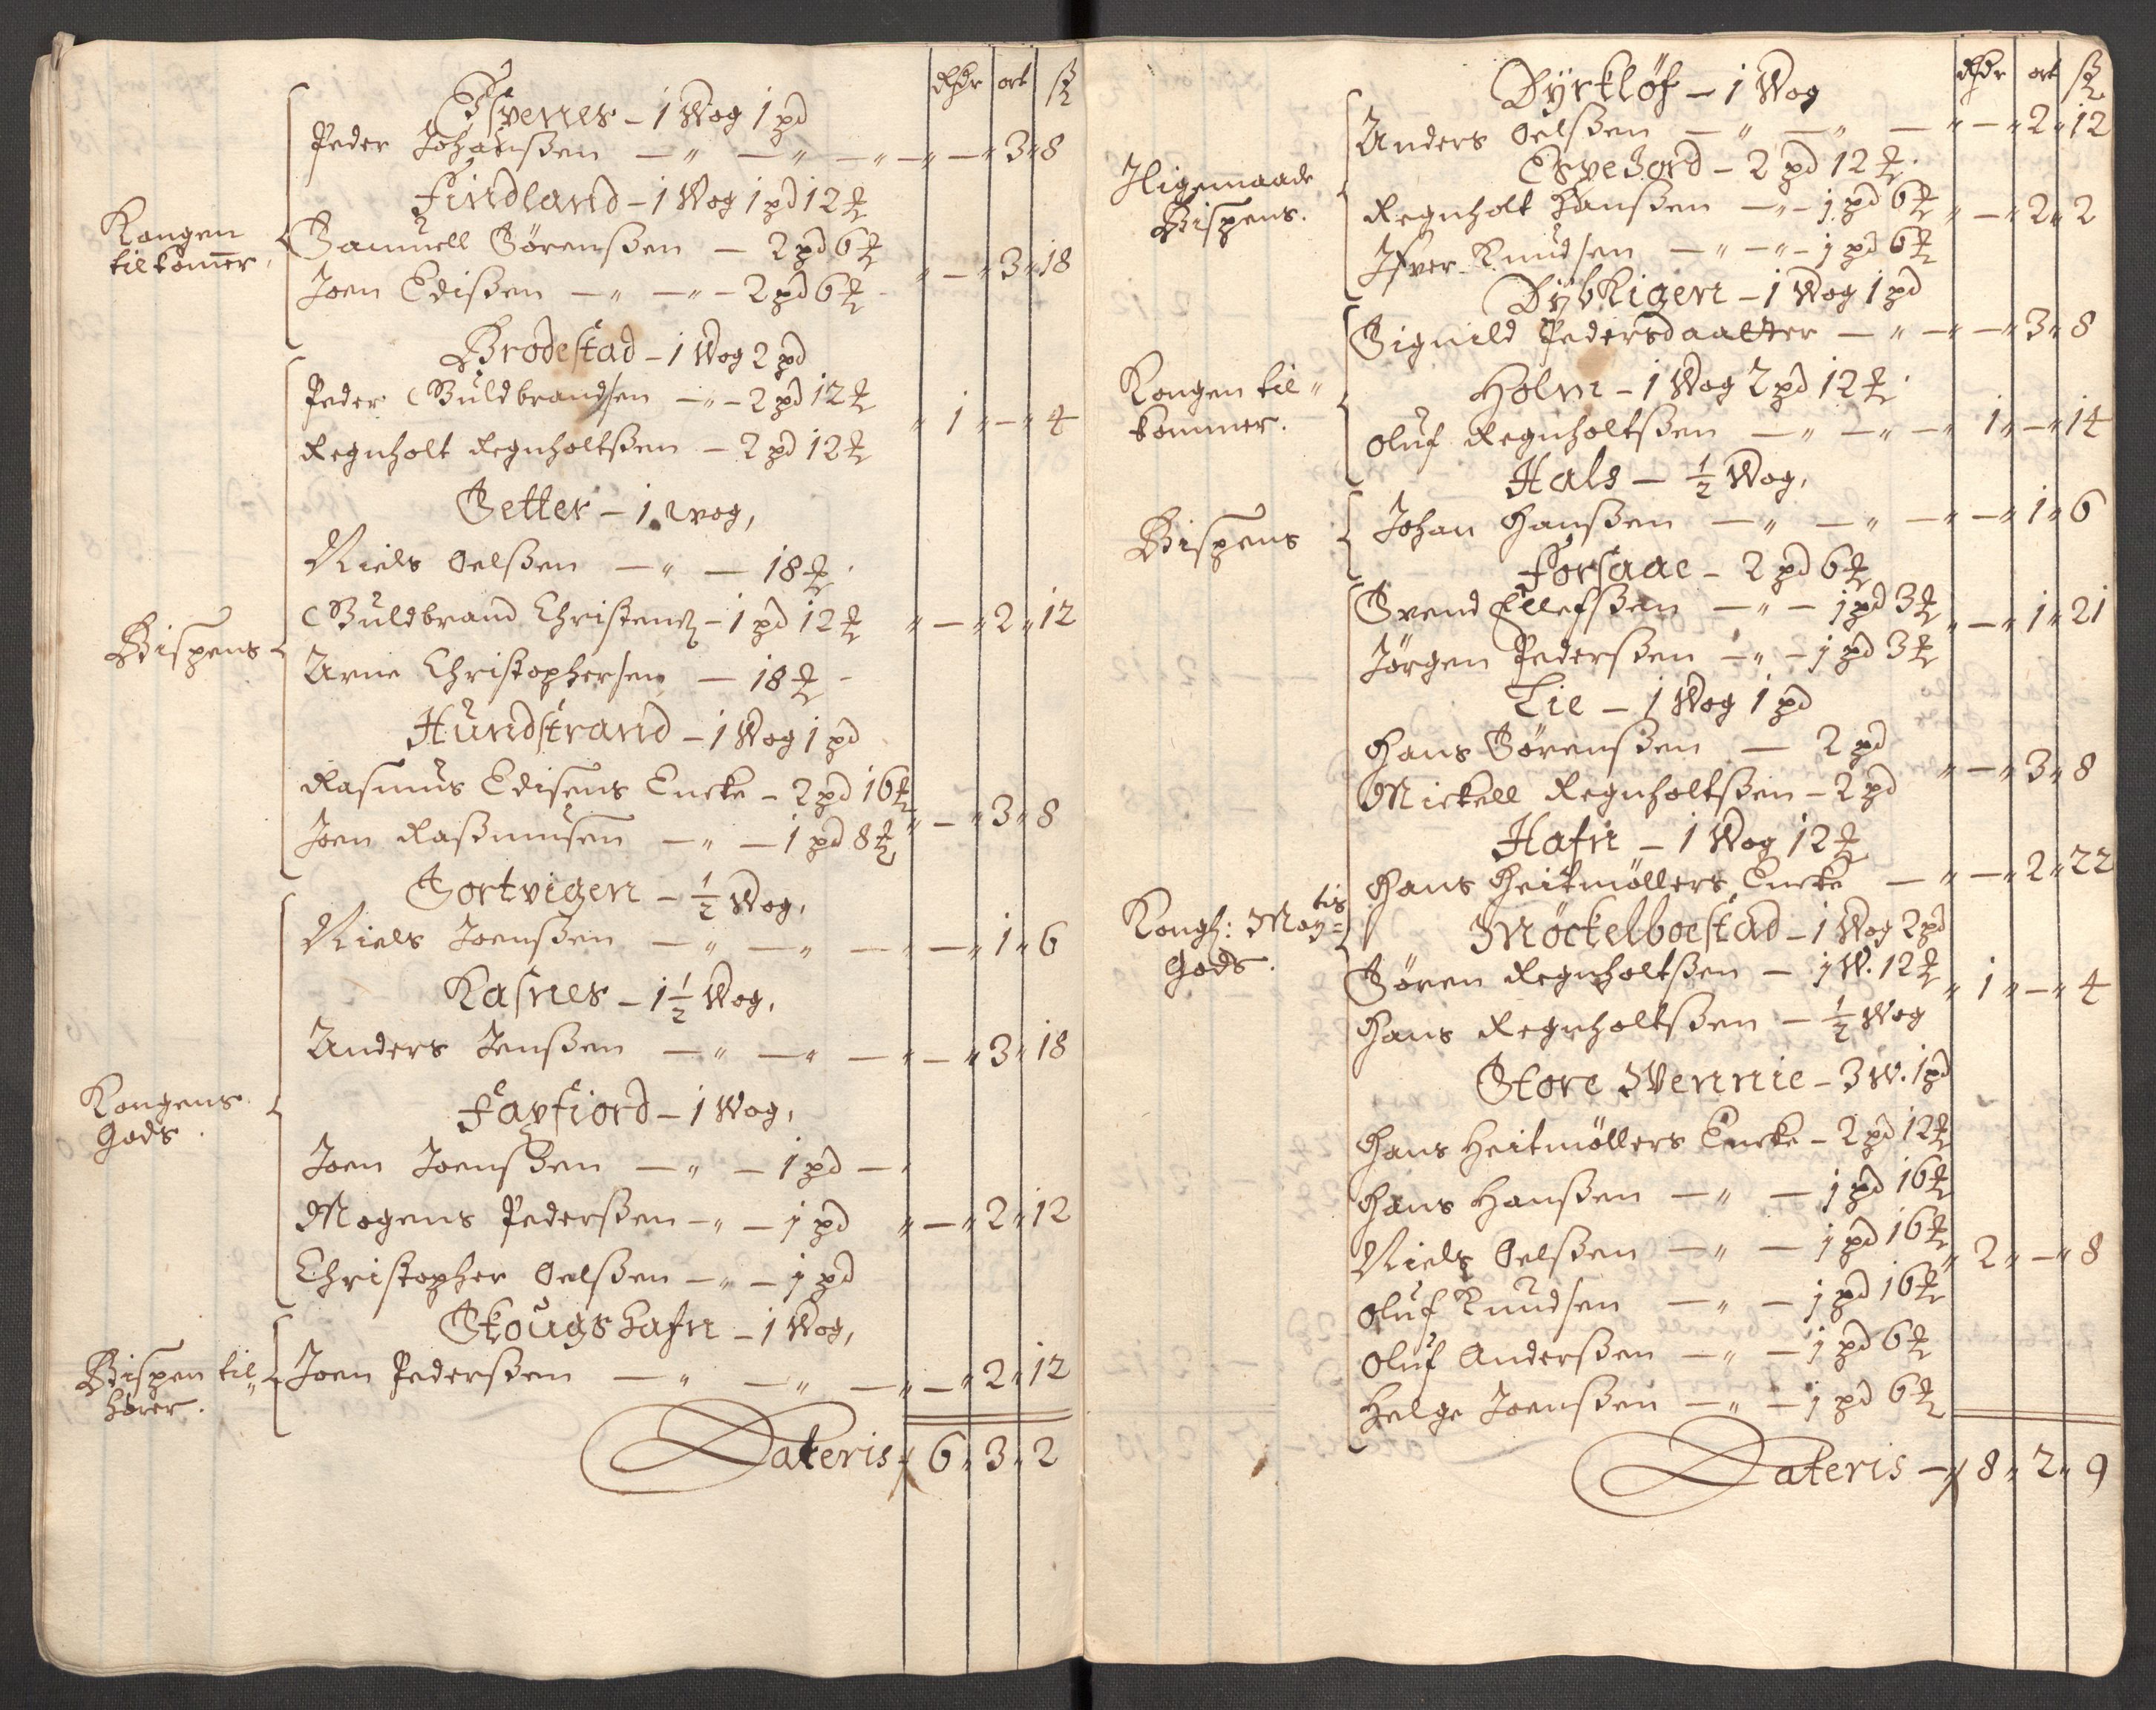 Rdr ort ß
Esvenes – 1 Wog 1 pd
Peder Johanßen – " – " – " – " – " 3 " 8
Findland – 1 Wog 1 pd 12 ℔
Kongen
tilkom̄er,
Samuell Sörenßen – 2 pd 6 ℔
" – " 3 " 18
Joen Edißen – " – " – 2 pd 6 ℔
Brodestad – 1 Wog 2 pd
Peder Guldbrandsen – " – 2 pd 12 ℔
" 1 " – " 4
Regnholt Regnholtßen – 2 pd 12 ℔
Setter – 1 Wog,
Niels Oelßen – " – 18 ℔
Bispens
Guldbrand Christens – 1 pd 12 ℔ " – " 2 " 12
Arne Christophersen – 18 ℔
Hundstrand – 1 Wog 1 pd
Rasmus Edisens Encke – 2 pd 16 ℔
" – " 3 " 8
Joen Raßmusen – " – 1 pd 8 ℔
Sortvigen – ½ Wog,
Niels Joenßen – " – " – " – " 1 " 6
Kasnes – 1 ½ Wog,
Anders Jenßen – " – " – " – " 3 " 18
Kongens
Gods.
Favfiord – 1 Wog,
Joen Joenßen – " – 1 pd – "
Mogens Pederßen – " – 1 pd " – " 2 " 12
Christopher Oelßen – " – 1 pd
Skougshafn – 1 Wog,
Bispen til "
hörer.
Joen Pederßen – " – " – " – " 2 " 12
Lateris – 6 " 3 " 2
Rdr ort ß
Dyrkløf – 1 Wog
Anders Oelßen – " – " – " – " 2 " 12
Esvejord – 2 pd 12 ℔.
Iligemaade
Bispens.
Regnholt Hanßen – " – 1 pd 6 ℔ " – " 2 " 2
Ifver Knudsen – " – " – 1 pd 6 ℔
Dybvigen – 1 Wog 1 pd
Signild Pedersdaatter – " – " – " 3 " 8
Kongen til "
kommer.
Holm – 1 Wog 2 pd 12 ℔.
Oluf Regnholtßen – " – " – " 1 " – " 14
Hals – ½ Wog,
Bispens
Johan Hanßen – " – " – " – " 1 " 6
Forsaae – 2 pd 6 ℔
Svend Ellefßen – " – 1 pd 3 ℔
" – " 1 " 21
Jörgen Pederßen – " – 1 pd 3 ℔
Lie – 1 Wog 1 pd
Hans Sörenßen – 2 pd
" – " 3 " 8
Mickell Regnholtßen – 2 pd
Hafn – 1 Wog 12 ℔
Hans Heitmöllers Encke – " – " 2 " 22
Kongl: Mayᵗⁱˢ
Gods.
Möckelboestad – 1 Wog 2 pd
Sören Regnholtßen – 1 W. 12 ℔
" 1 " – " 4
Hans Regnholtßen – ½ Wog
Store Mennie – 3 W. 1 pd
Hans Heitmöllers Encke – 2 pd 12 ℔
Hans Hanßen – " – 1 pd 16 ℔
Niels Oelßen – " – 1 pd 16 ℔
" 2 " – " 8
Oluf Knudsen – " – 1 pd 16 ℔
Oluf Anderßen – " – 1 pd 6 ℔
Helge Joenßen – " – 1 pd 6 ℔
Lateris – 8 " 2 " 9